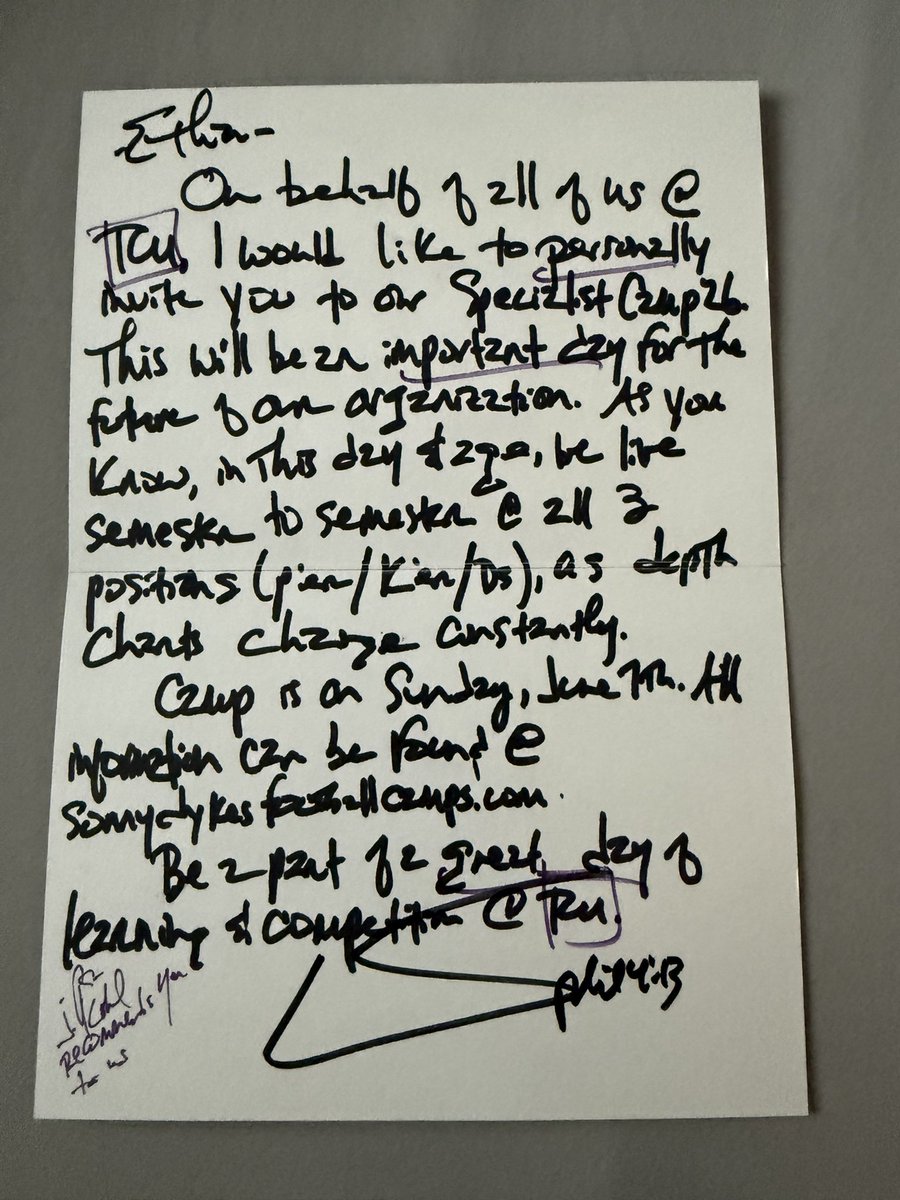 Ethan-
On behalf of all of us @
TCU, I would like to personally
invite you to our Specialist Camp 26.
This will be an important day for the
future of our organization. As you
know, in this day & age, we live
semester to semester @ all 3
positions (, as depth
charts change constantly.
Camp is on Sunday, June 7th. All
information can be found @
sonnydykesfootballcamps.com.
Be a part of a great day of
learning & competition @ TCU.
phil 4:13
recommends you
to us